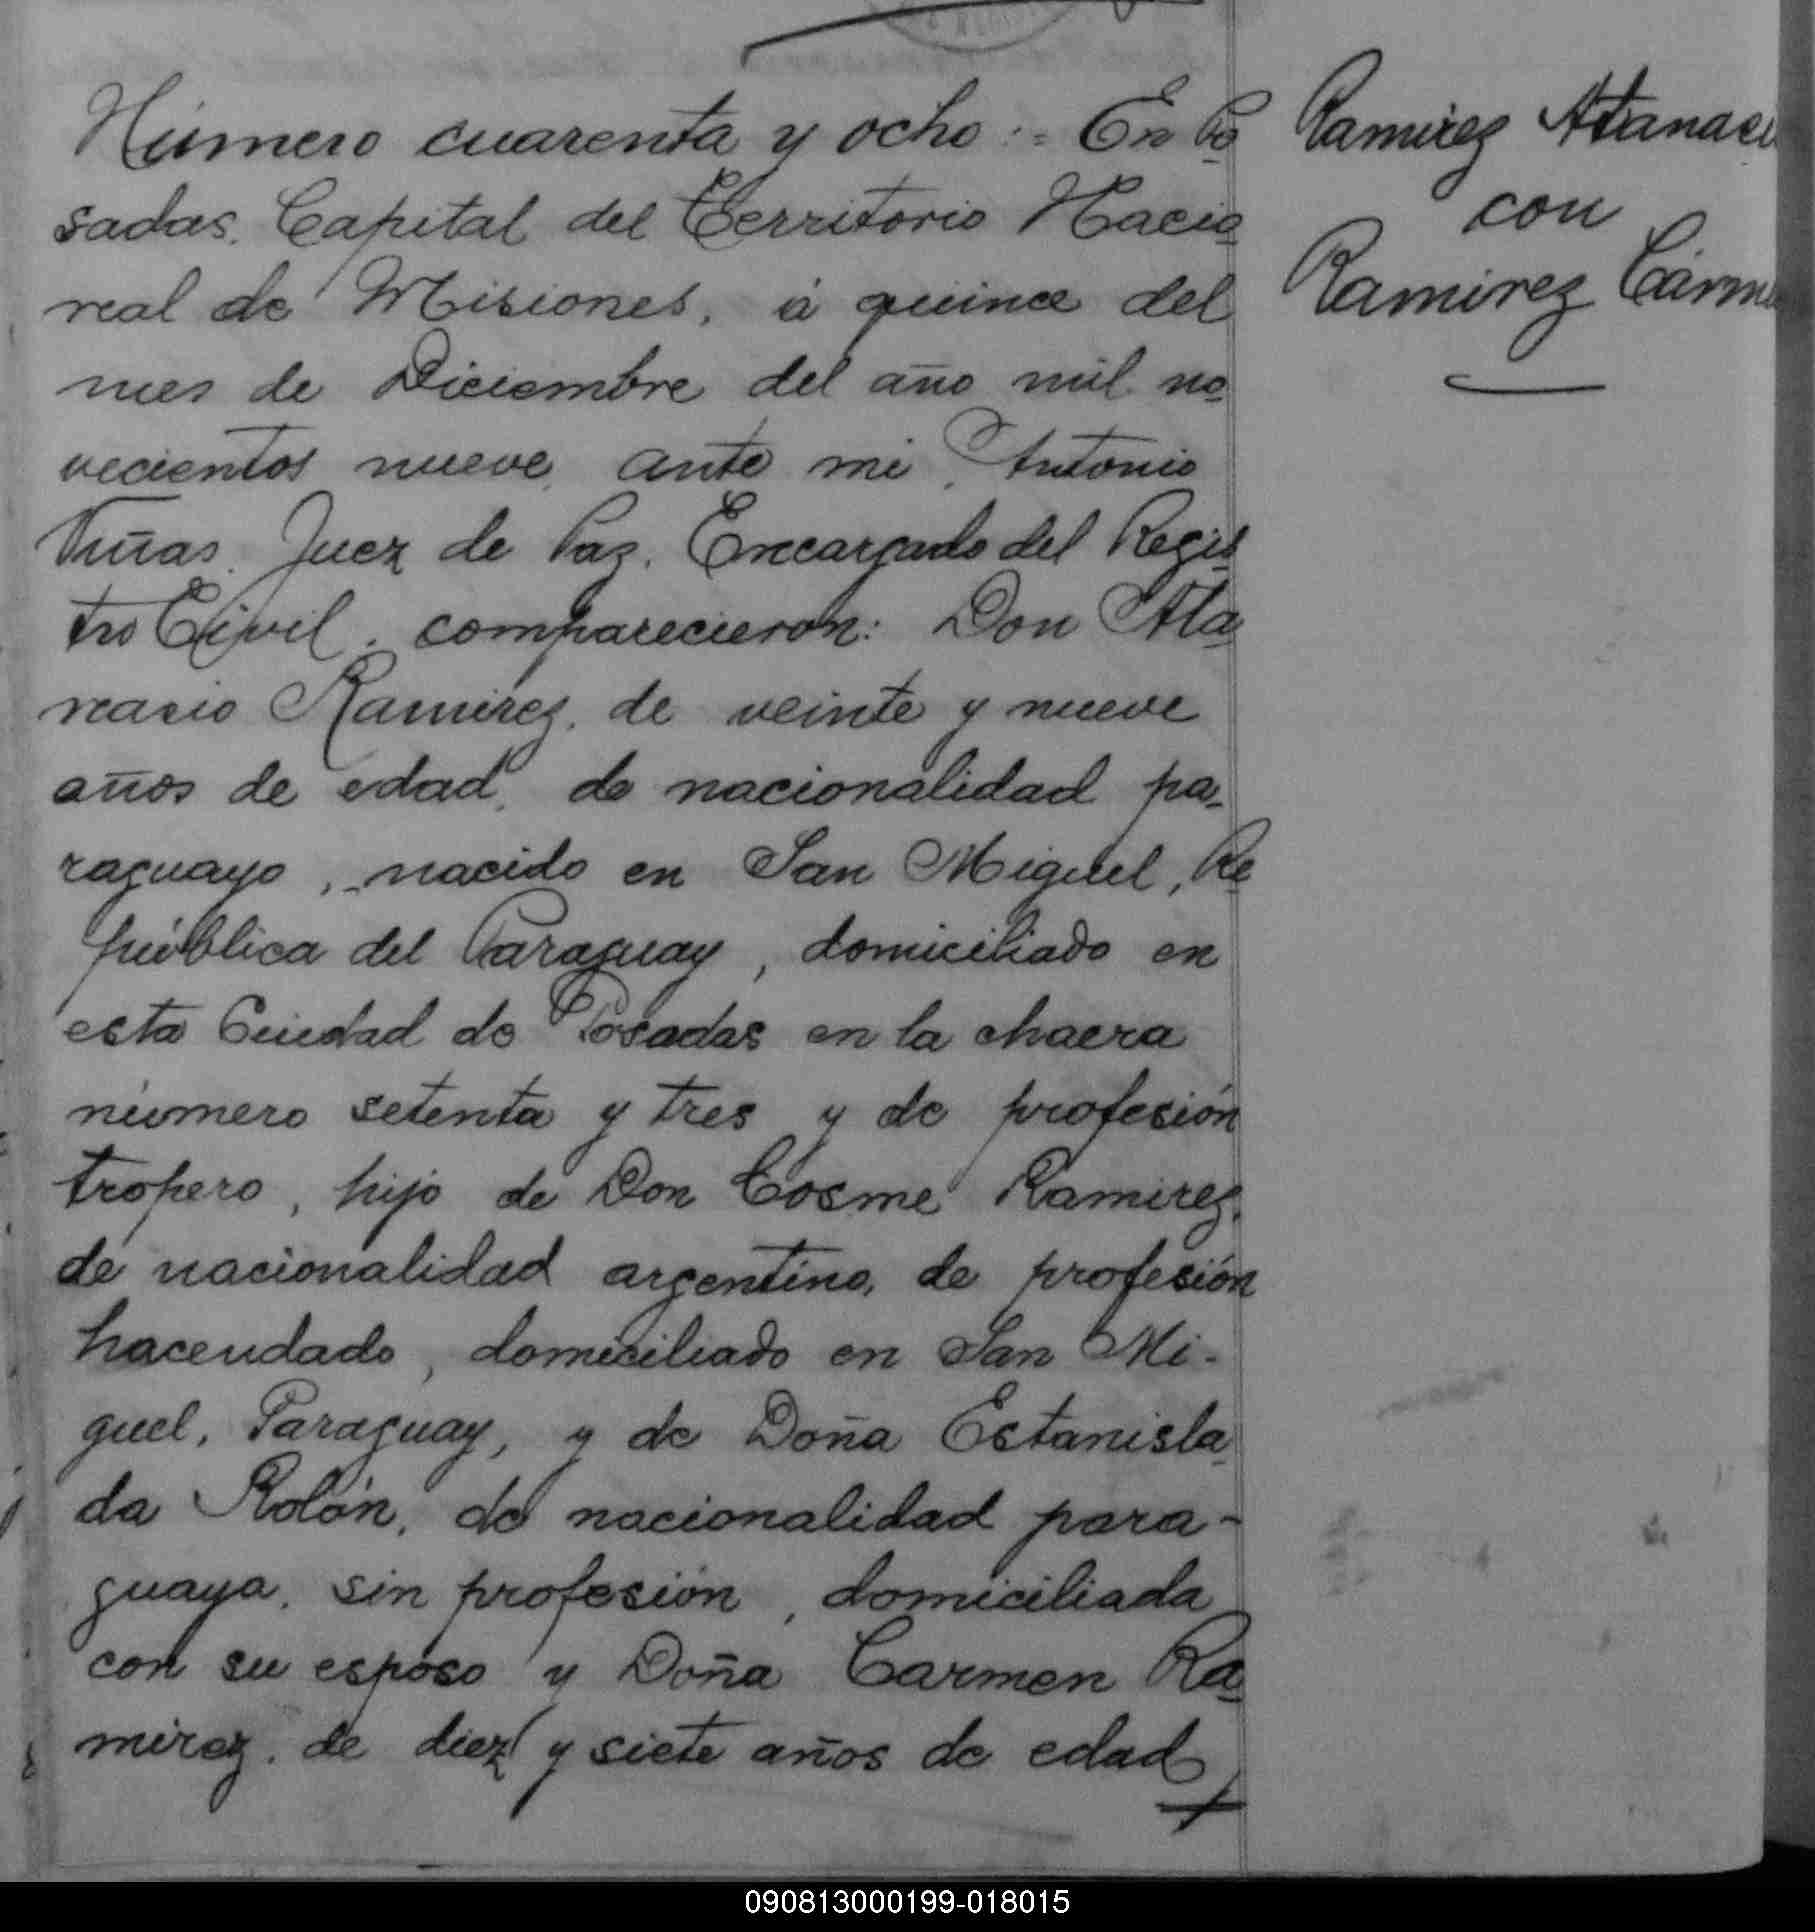 Número cuarenta y ocho := En Po
sadas, Capital del Territorio Nacio
nal de Misiones, á quince del
mes de Diciembre del año mil no
vecientos nueve, ante mi, Antonio
Viñas, Juez de Paz, Encargado del Regis
tro Civil, comparecieron: Don Ata
nacio Ramirez, de veinte y nueve
años de edad, de nacionalidad pa-
raguayo, nacido en San Miguel, Re
pública del Paraguay, domiciliado en
esta Ciudad de Posadas en la chacra
número setenta y tres y de profesión
tropero, hijo de Don Cosme Ramirez,
de nacionalidad argentino, de profesión
hacendado, domiciliado en San Mi-
guel, Paraguay, y de Doña Estanisla
da Rolón, de nacionalidad para-
guaya, sin profesión, domiciliada
con su esposo y Doña Carmen Ra
mirez, de diez y siete años de edad
Ramirez Atanaci
con
Ramirez Cárm
090813000199-018015